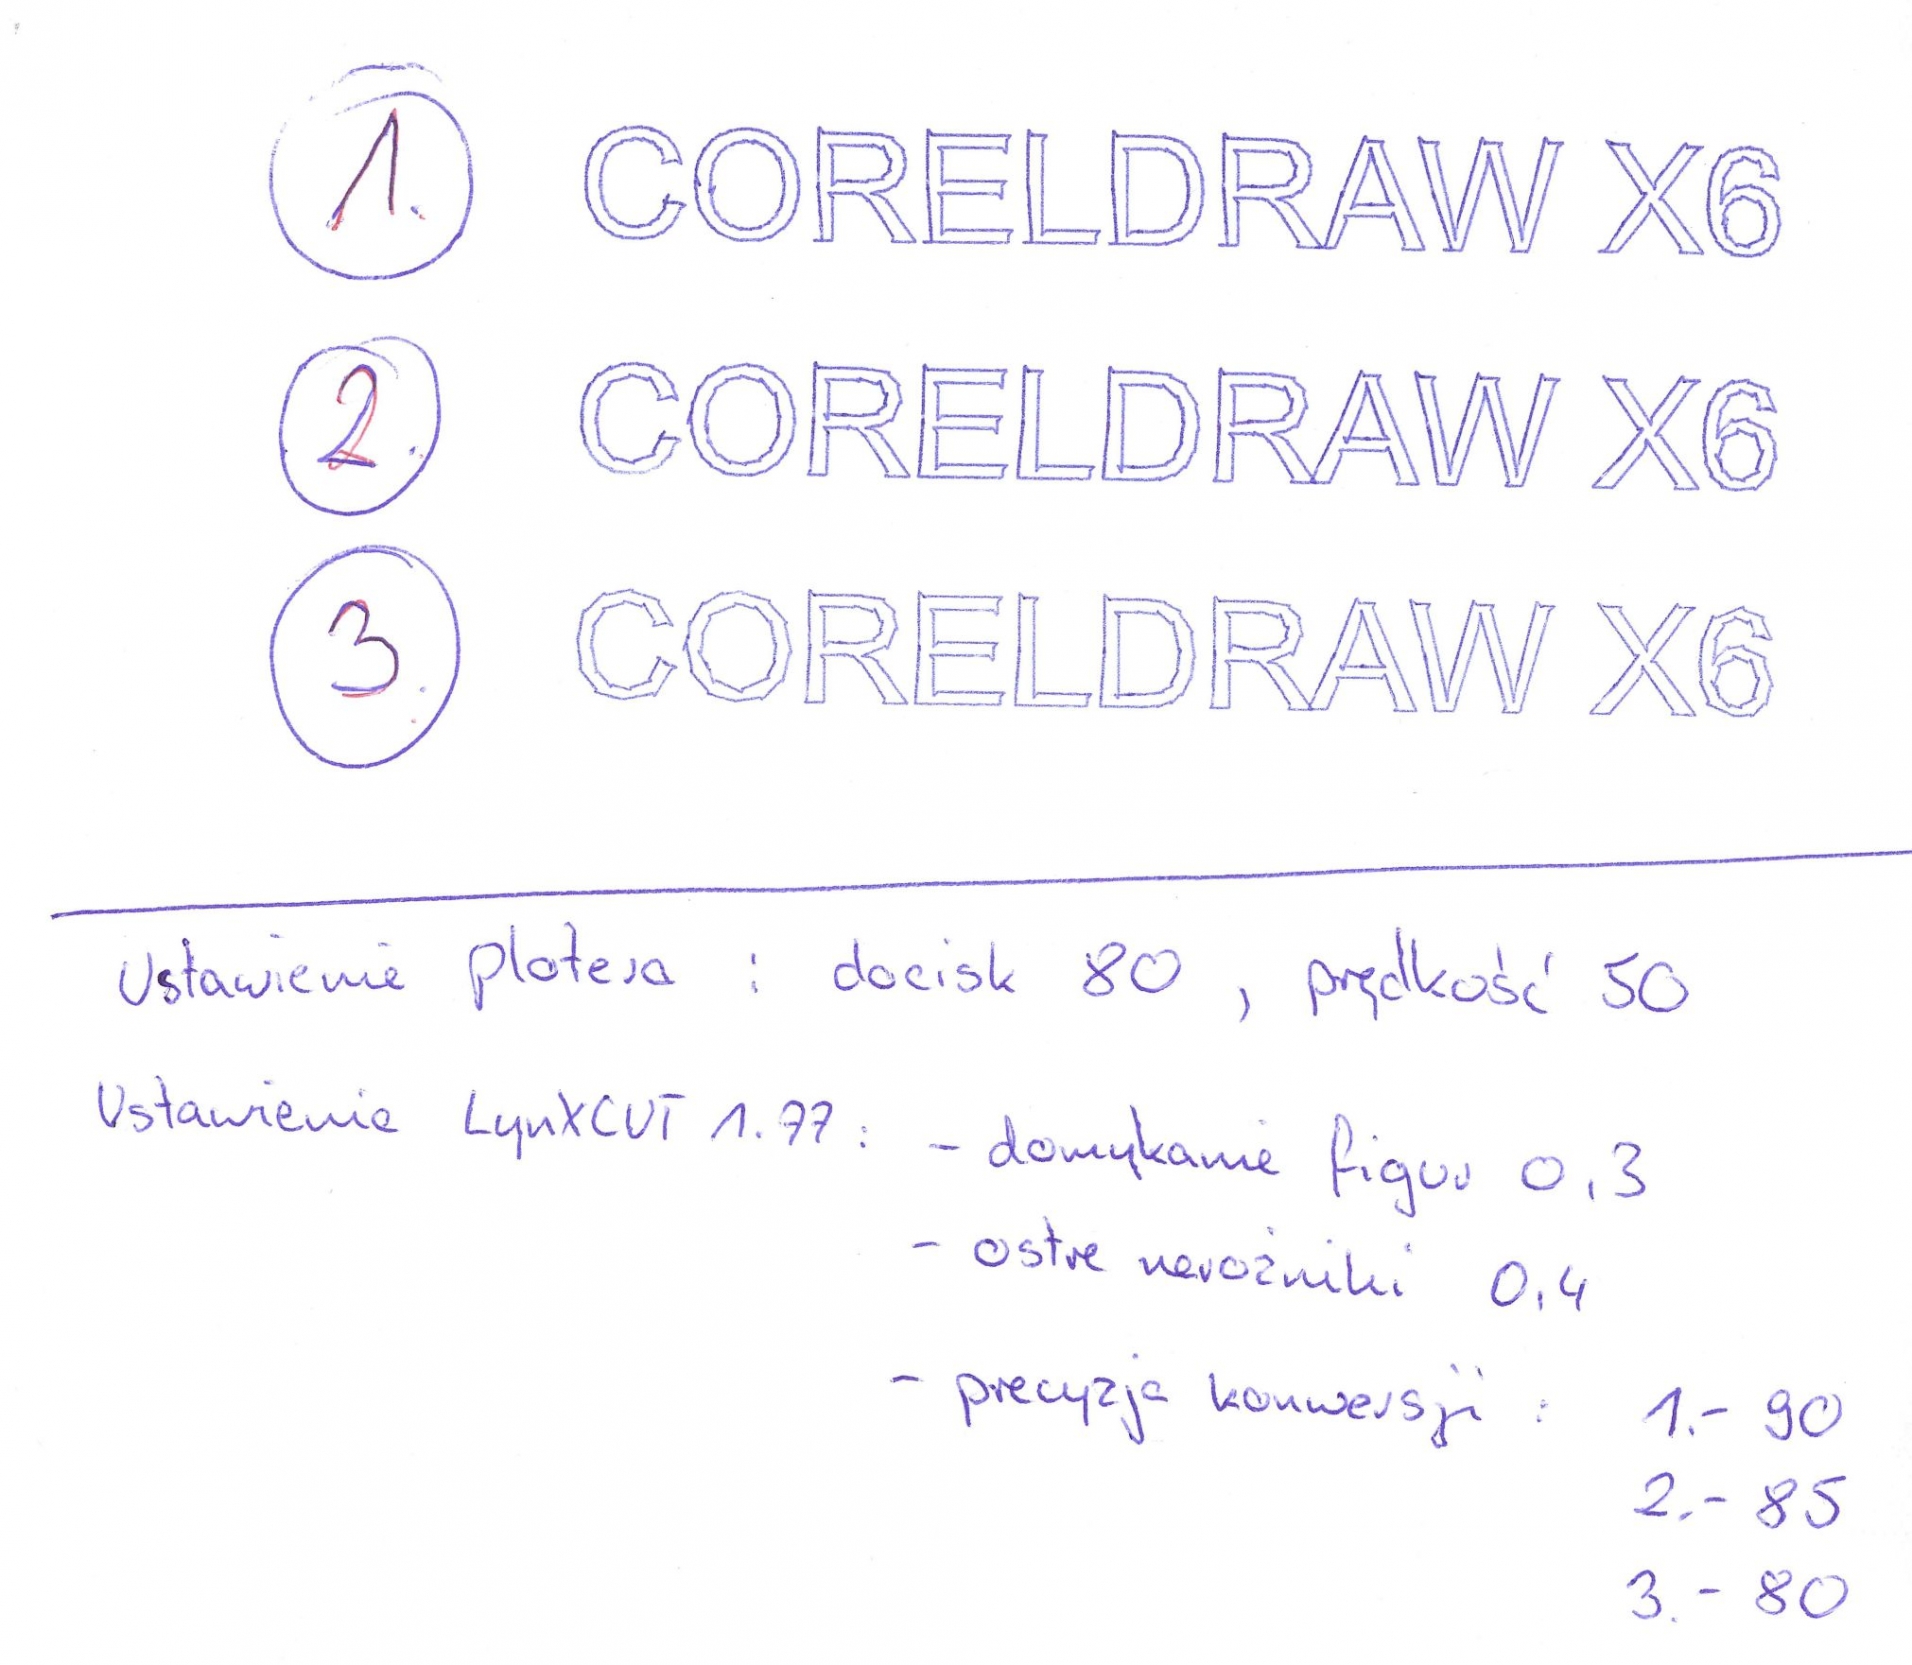 1. CORELDRAW X6
2. CORELDRAW X6
3. CORELDRAW X6
Ustawienie plotera : docisk 80 , prędkość 50
Ustawienie LynXCUT 1.77 : - domykanie figur 0,3
- ostre narożniki 0,4
- precyzja konwersji : 1.- 90
2.- 85
3.- 80